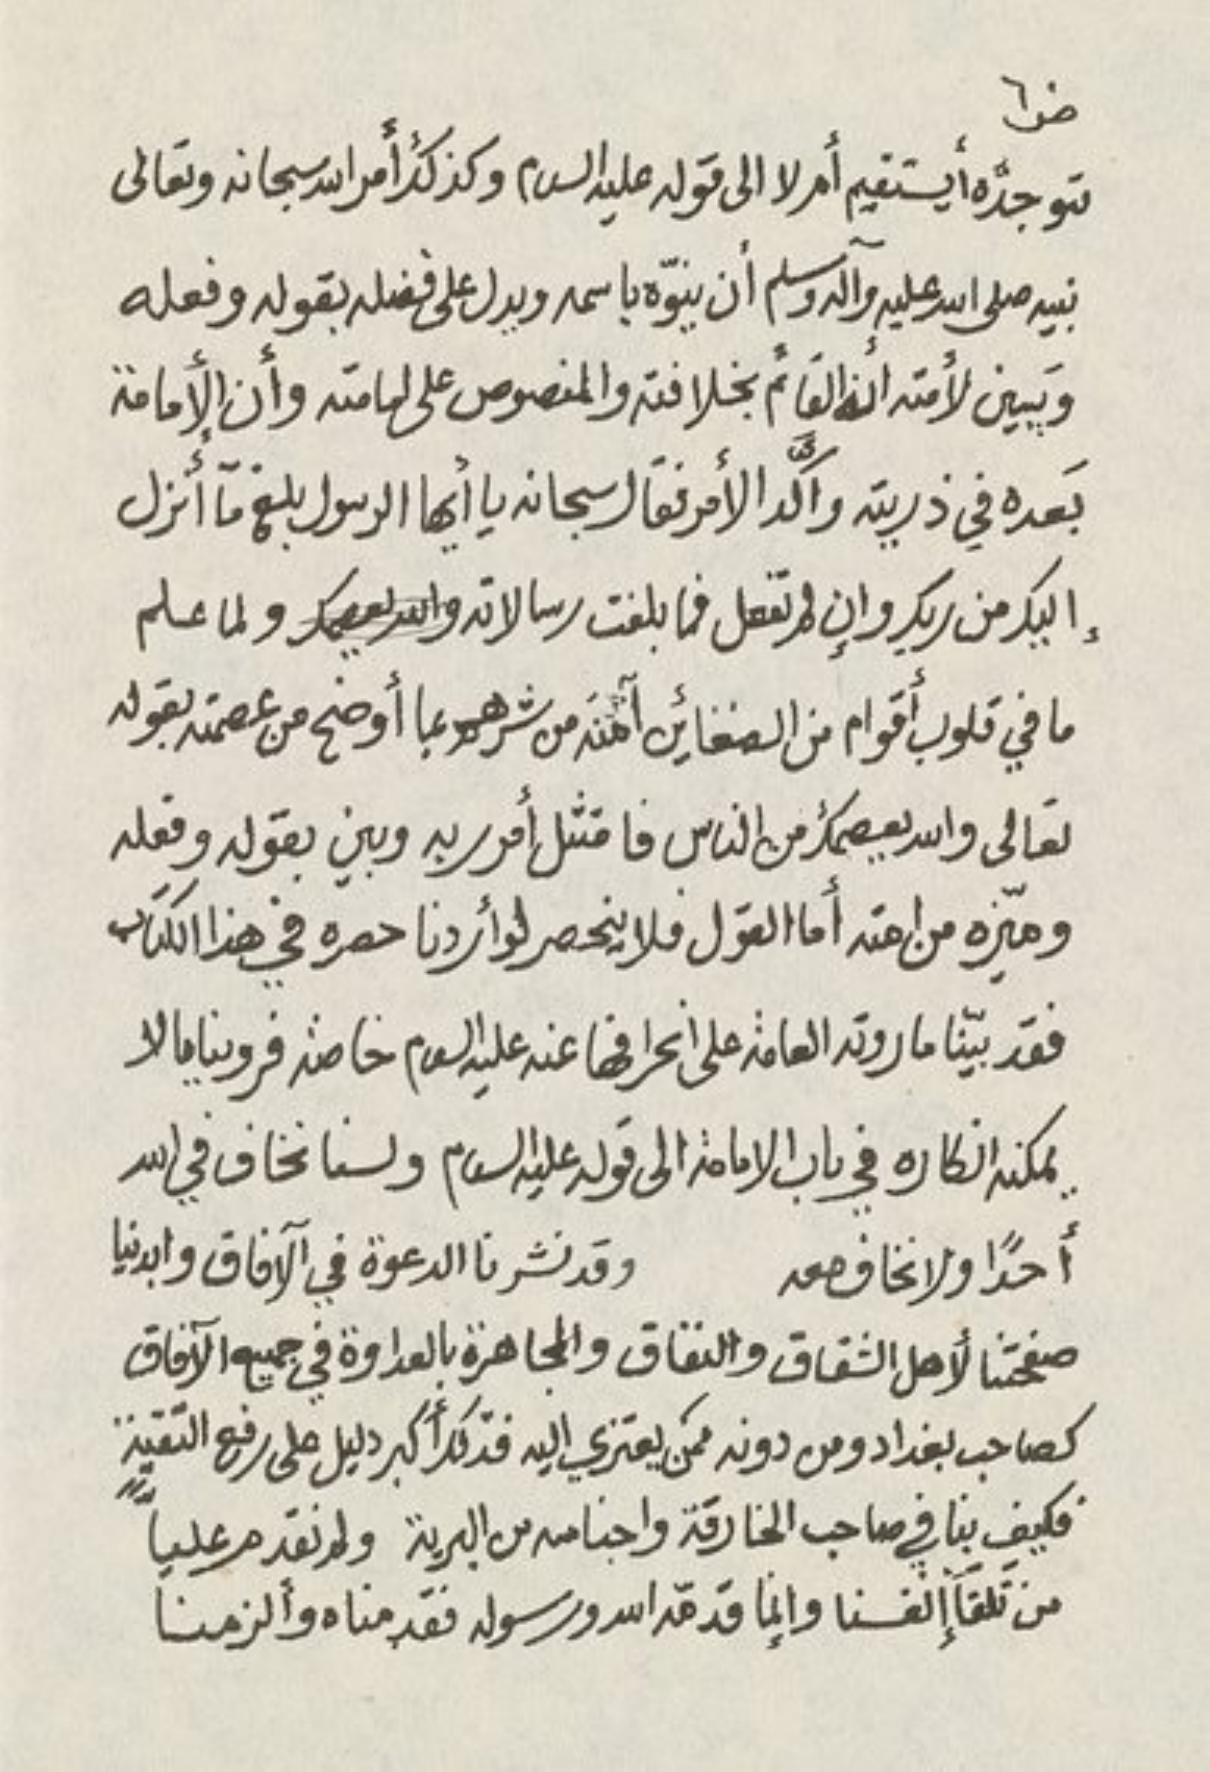 بتوجده أيستقيم أم لا الى قوله عليه السلام وكذلك أمر الله سبحانه وتعالى
نبيه صلى الله عليه وآله وسلم أن ينوّه باسمه ويدل على فضله بقوله وفعله
ويبين لأمته أنه القائم بخلافته والمنصوص على إمامته وأن الإمامة
بعده في ذريته وأكّد الأمر فقال سبحانه يا أيها الرسول بلغ ما أنزل
إليك من ربك وإن لم تفعل فما بلغت رسالاته ولما علم
ما في قلوب أقوام من الضغائن آمنه من شرهم بما أوضح من عصمته بقوله
تعالى والله يعصمك من الناس فامتثل أمر ربه وبين بقوله وفعله
وميّزه من امته أما القول فلا ينحصر لو أردنا حصره في هذا الكتاب
فقد بيّنا ما روته العامة على انحرافها عنه عليه السلام خاصة فروينا ما لا
يمكنه انكاره في باب الامامة الى قوله عليه السلام ولسنا نخاف في الله
أحدًا ولا نخاف معه وقد نشرنا الدعوة في الآفاق وابدنيا
صفحتنا لأهل الشقاق والنفاق والمجاهرة بالعداوة في جميع الآفاق
كصاحب بغداد ومن دونه ممن يعتزي اليه فذلك أكبر دليل على رفع التقية
فكيف بنا في صاحب الخارقة واجناسه من البرية ولم نقدم علياً
من تلقآء أنفسنا وإنما قدمه الله ورسوله فقدمناه وألزمنا